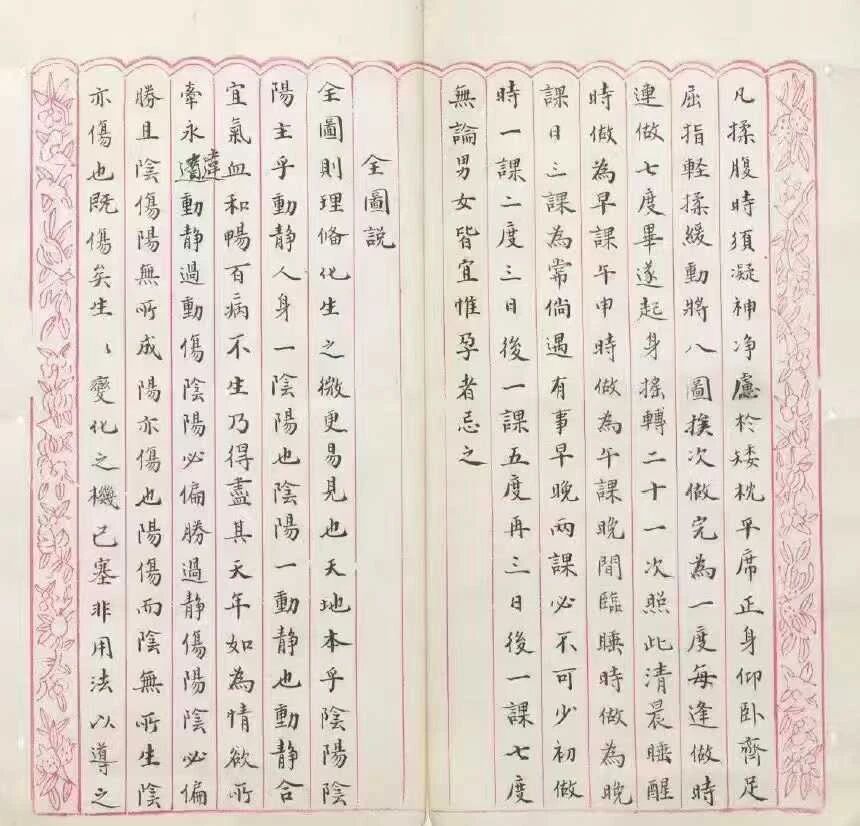 凡揉腹時須凝神净慮於矮枕平席正身仰卧齊足
屈指輕揉緩動將八圖挨次做完為一度每逢做時
連做七度畢遂起身搖轉二十一次照此清晨睡醒
時做為早課午申時做為午課晚間臨睡時做為晚
課日三課為常倘遇有事早晚兩課必不可少初做
時一課二度三日後一課五度再三日後一課七度
無論男女皆宜惟孕者忌之
全圖説
全圖則理備化生之微更易見也天地本乎陰陽陰
陽主乎動靜人身一陰陽也陰陽一動靜也動静合
宜氣血和暢百病不生乃得盡其天年如為情欲所
牽永違動靜過動傷陰陽必偏勝過靜傷陽陰必偏
勝且陰傷陽無所成陽亦傷也陽傷而陰無所生陰
亦傷也既傷矣生〻變化之機已塞非用法以導之